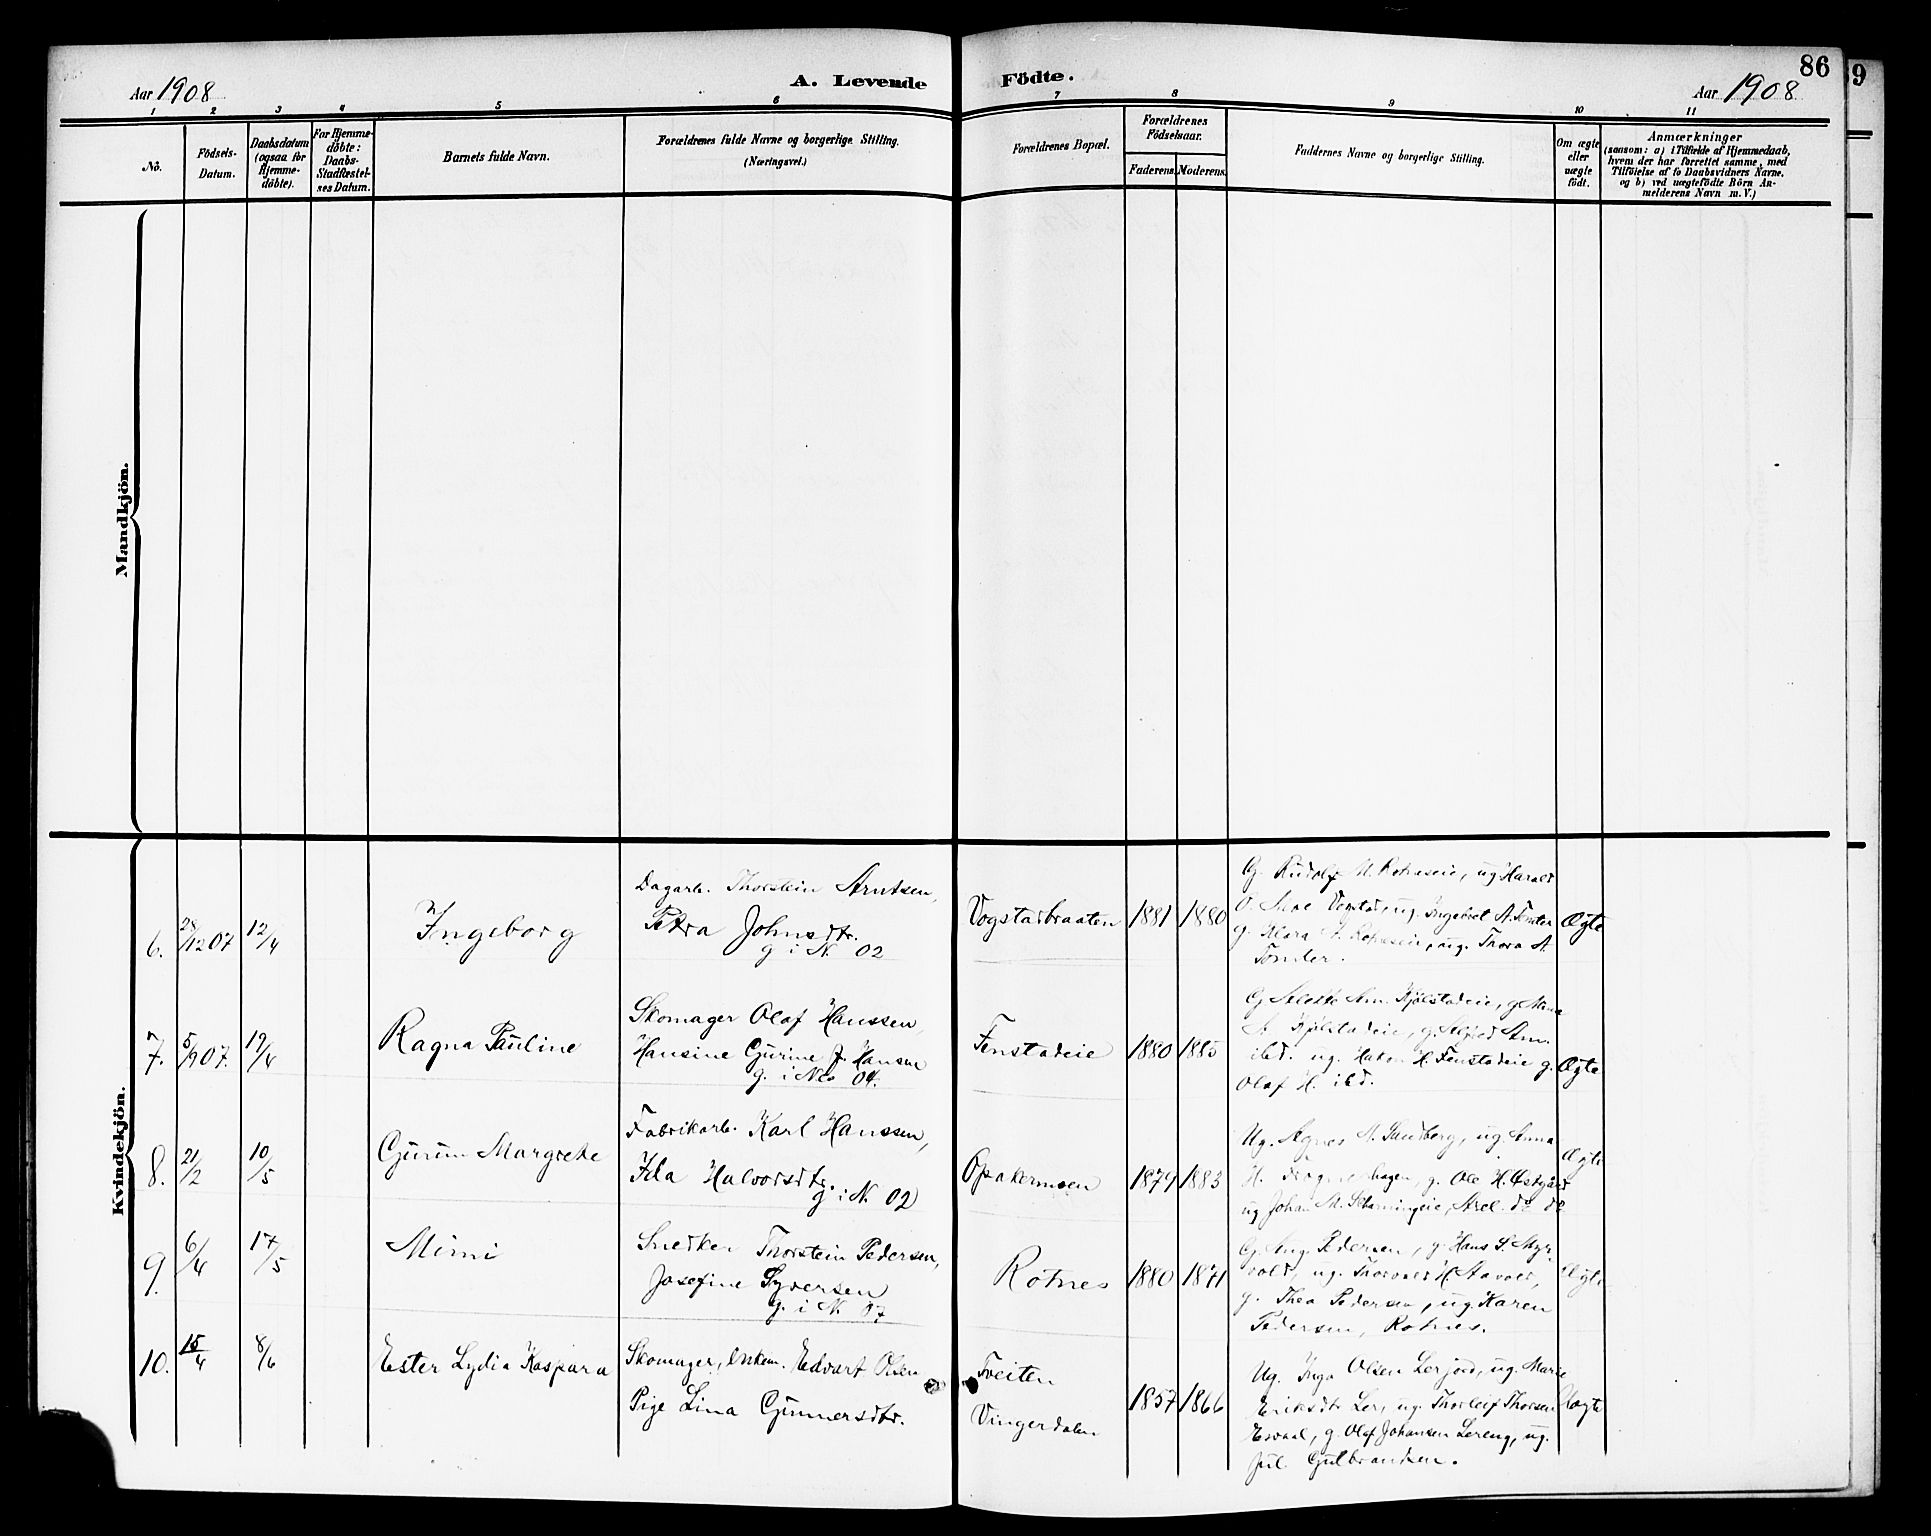 Aar 1908
A. Levende
Födte.
86
9
Aar 1908
1 2 3 4 5 6 7 8 9 10 11
No.
Födsels-
Datum.
Daabsdatum
(ogsaa for
Hjemme-
döbte).
For Hjemme-
döbte:
Daabs-
Stadfæstel-
ses Datum.
Barnets fulde Navn.
Forældrenes fulde Navne og borgerlige Stilling.
(Næringsvei.)
Forældrenes Bopæl.
Forældrenes
Födselsaar.
Faderens. Moderens.
Faddernes Navne og borgerlige Stilling.
Om ægte
eller
uægte
födt.
Anmærkninger
(saasom: a) i Tilfælde af Hjemmedaab,
hvem der har forrettet samme, med
Tilföielse af to Daabsvidners Navne,
og b) ved uægtefödte Börn An-
melderens Navn m. V.)
Mandkjön.
Kvindekjön.
6. 28/12 07 12/4
Ingeborg
Dagarb. Thorstein Arntsen,
Petra Johnsdtr.
g i N. 02
Vogstadbraaten
1881 1880
G. Rudolf M. Rotneseie, ug Harald
O. Moe Vogstad, ug. Ingebret A. Tonder
g. Klara J. Rotneseie, ug. Thora A.
Tonder.
Ægte
7. 5/9 07. 19/4
Ragna Pauline
Skomager Olaf Hanssen,
Hansine Gurine J. Hansen
g. i Nes 04.
Fenstadeie
1880 1885
Am. Kjölstadeie, g Maria
A. Kjölstadeie, g. Alfred Am.
ibd. ug. Hakon H. Fenstadeie g.
Olaf H. ibd.
Ægte
8. 21/2 10/5
Gurun Margrete
Fabrikarb. Karl Hanssen,
Ida Halvorsdtr.
g i N. 02
Opakermoen
1879 1883
Ug. Agnes M. Sandberg, ug. Anna
H. hagen, g. Ole H. Østgård
ug Johan M. Axel. do do
Ægte
9. 6/4 17/5
Mimi
Snedker Thorstein Pedersen,
Josefine Syversen
g. i N. 07
Rotnes
1880 1871
G. Aug. Pedersen, g. Hans S. Myr
vold, ug. Thorvald H. Aavold,
g. Thea Pedersen, ug. Karen
Pedersen, Rotnes.
Ægte
10. 15/4 8/6
Ester Lydia Kaspara
Skomager, Enkem. Edvart Olsen
Pige Lina Gunnersdtr.
Tveiten
Vingerdalen
1857 1866
Ug. Inga Olsen Lerjord, ug. Marie
Eriksdtr Ler, ug. Thorleif Thorsen
g. Olaf Johansen Lereng, ug.
Jul. Gulbrandsen.
Uægte